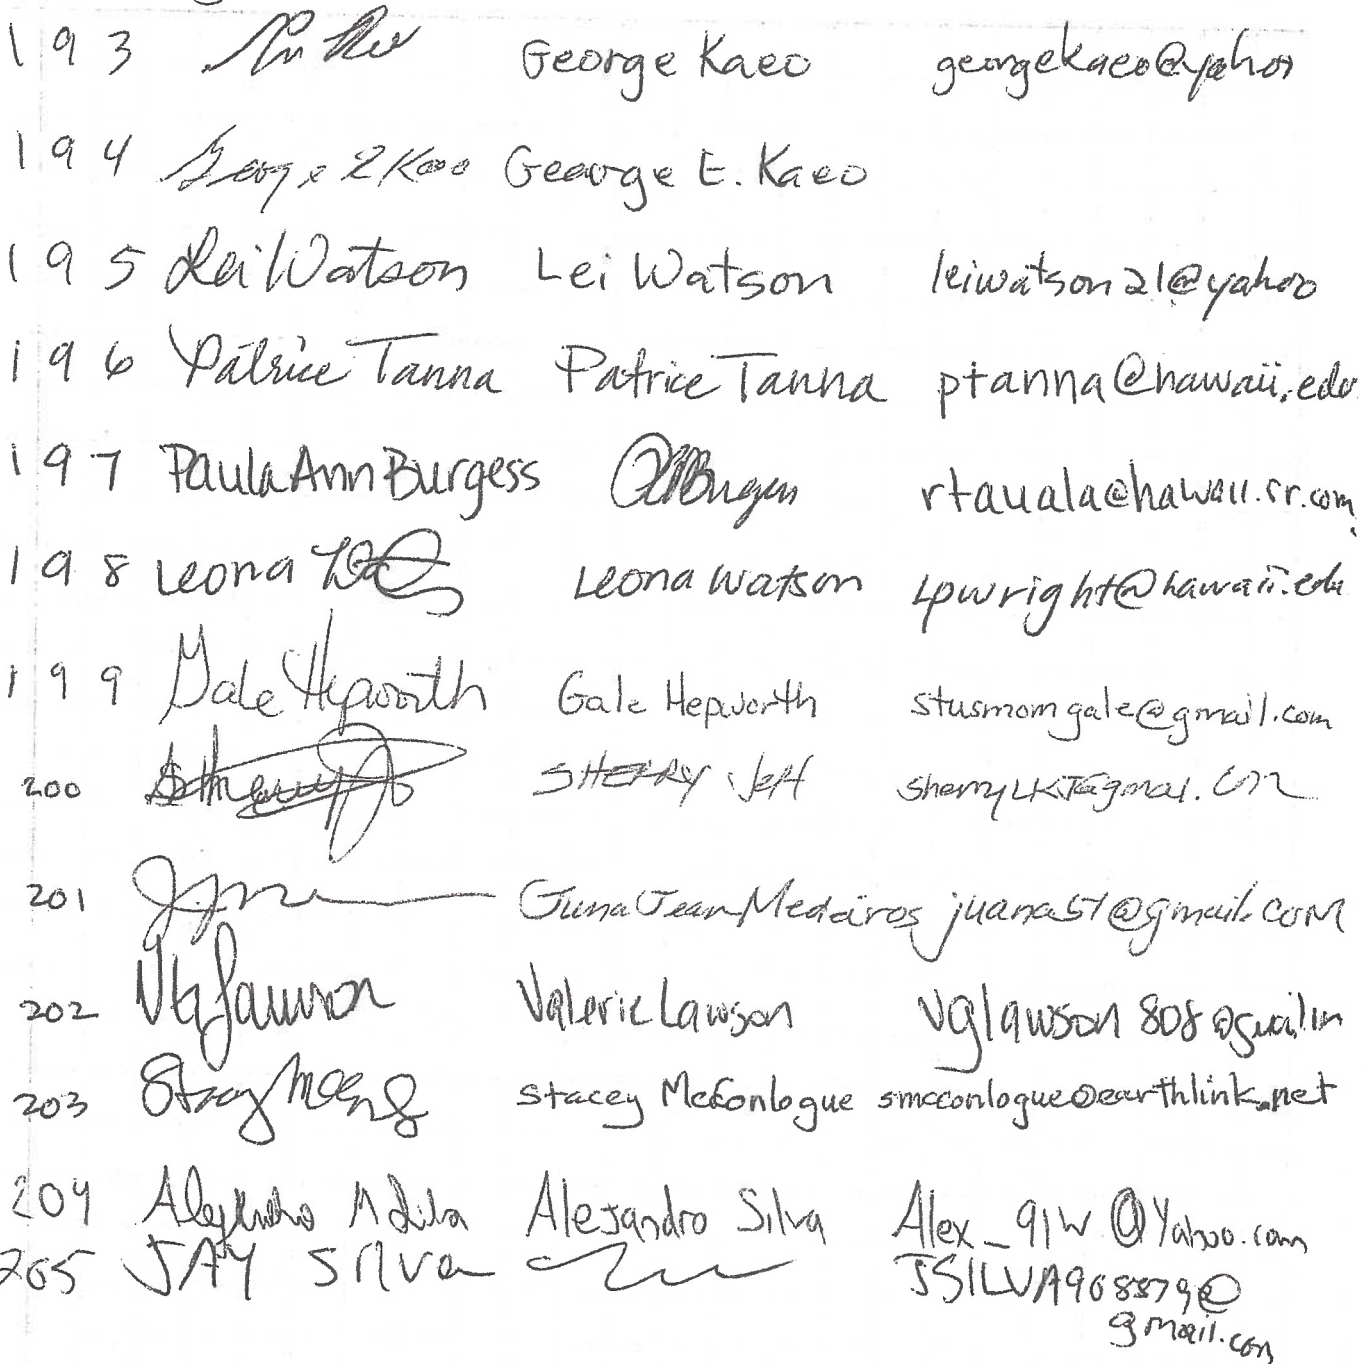 193 George Kaeo georgekaeo@yahoo
194 George E Kaeo George E. Kaeo
195 Lei Watson Lei Watson leiwatson21@yahoo
196 Patrice Tanna Patrice Tanna ptanna@hawaii.edu
197 Paula Ann Burgess rtauala@hawaii.rr.com
198 Leona Leona Watson lpwright@hawaii.edu
199 Gale Hepworth Gale Hepworth stusmomgale@gmail.com
200 SHERRY Jeff
201 Jean Medeiros juana51@gmail.com
202 VG Lawson Valerie Lawson vglawson808
203 Stacey McConlogue smcconlogue@earthlink.net
204 Alejandro Silva Alex_91W@Yahoo.com
205 JAY SIlva
gmail.com